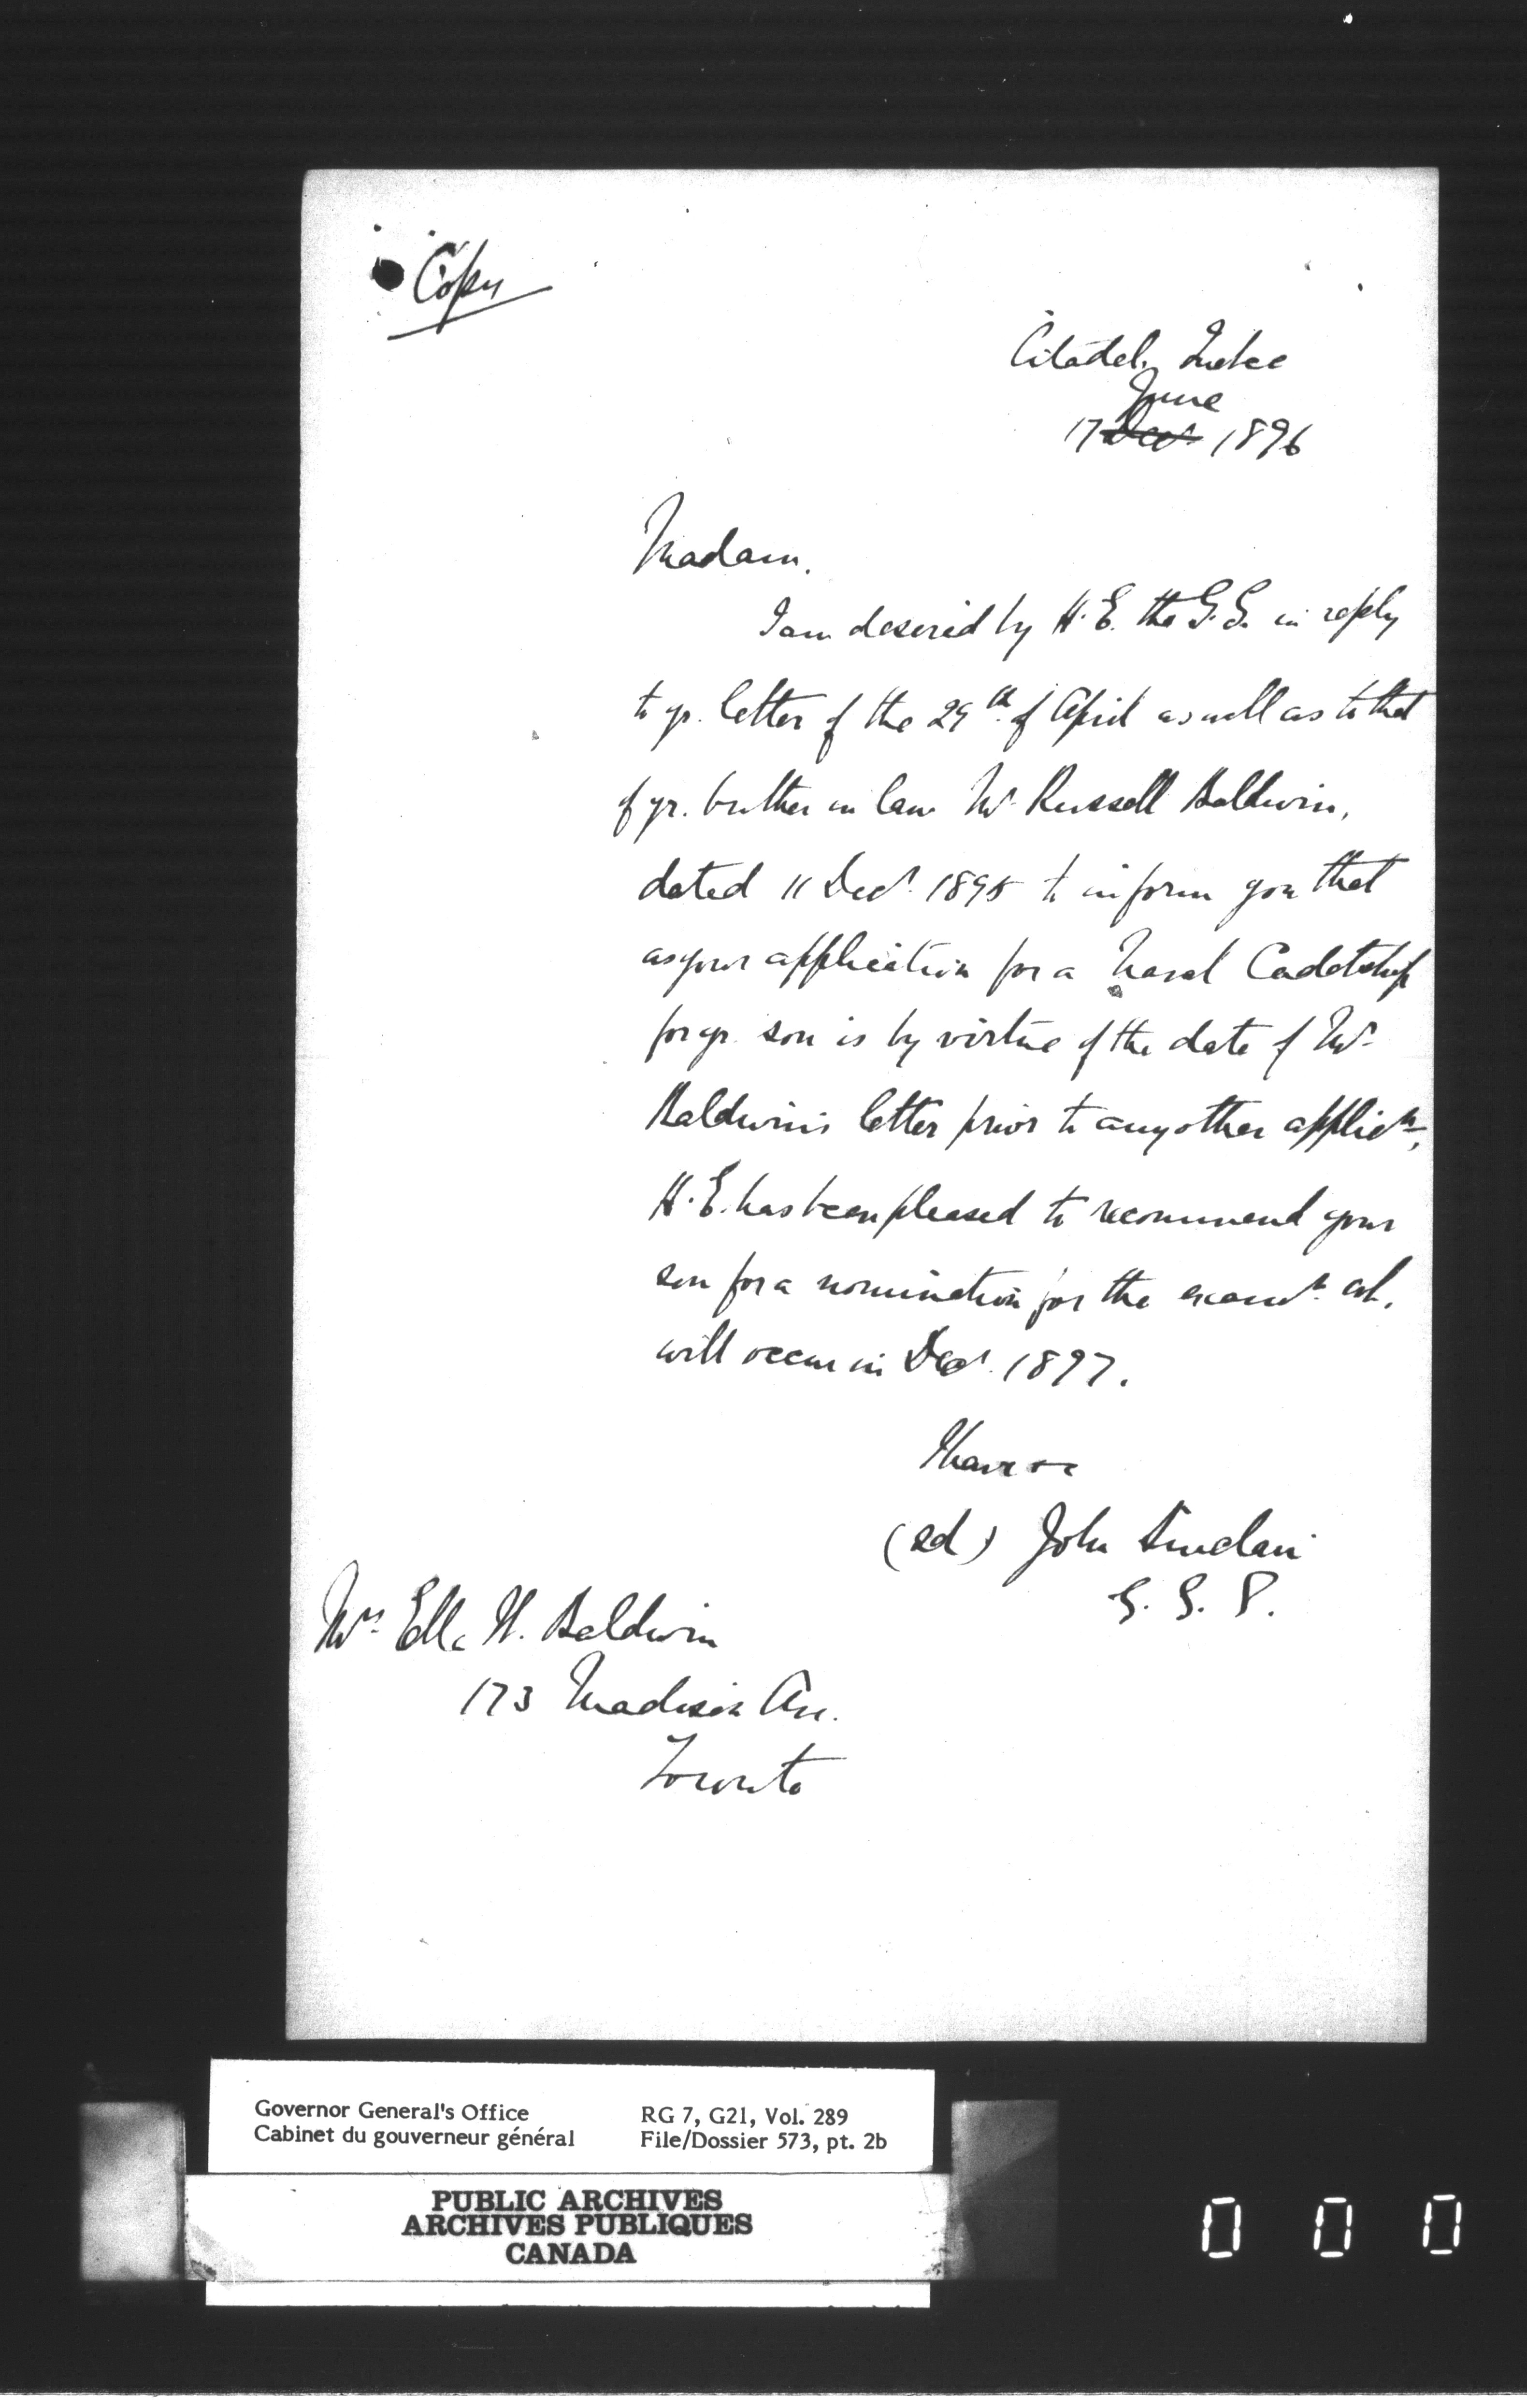 Copy
Citadel, Quebec
June
17 Decr 1896
Madam.
I am desired by H.E. the G.G. in reply
to yr. letter of the 29th of April as well as to that
of yr. brother in law Mr Russell Baldwin,
dated 11 Decr. 1895 to inform you that
as your application for a Naval Cadetship
for yr. son is by virtue of the date of Mr
Baldwin's letter prior to any other applicn,
H.E. has been pleased to recommend your
son for a nomination for the examn. wh.
will occur in Decr. 1897.
I have &c
(sd) John Sinclair
G. G. S.
Mrs. Ella H. Baldwin
173 Madison Av.
Toronto
Governor General's Office
Cabinet du gouverneur général
RG 7, G21, Vol. 289
File/Dossier 573, pt. 2b
PUBLIC ARCHIVES
ARCHIVES PUBLIQUES
CANADA
0 0 0